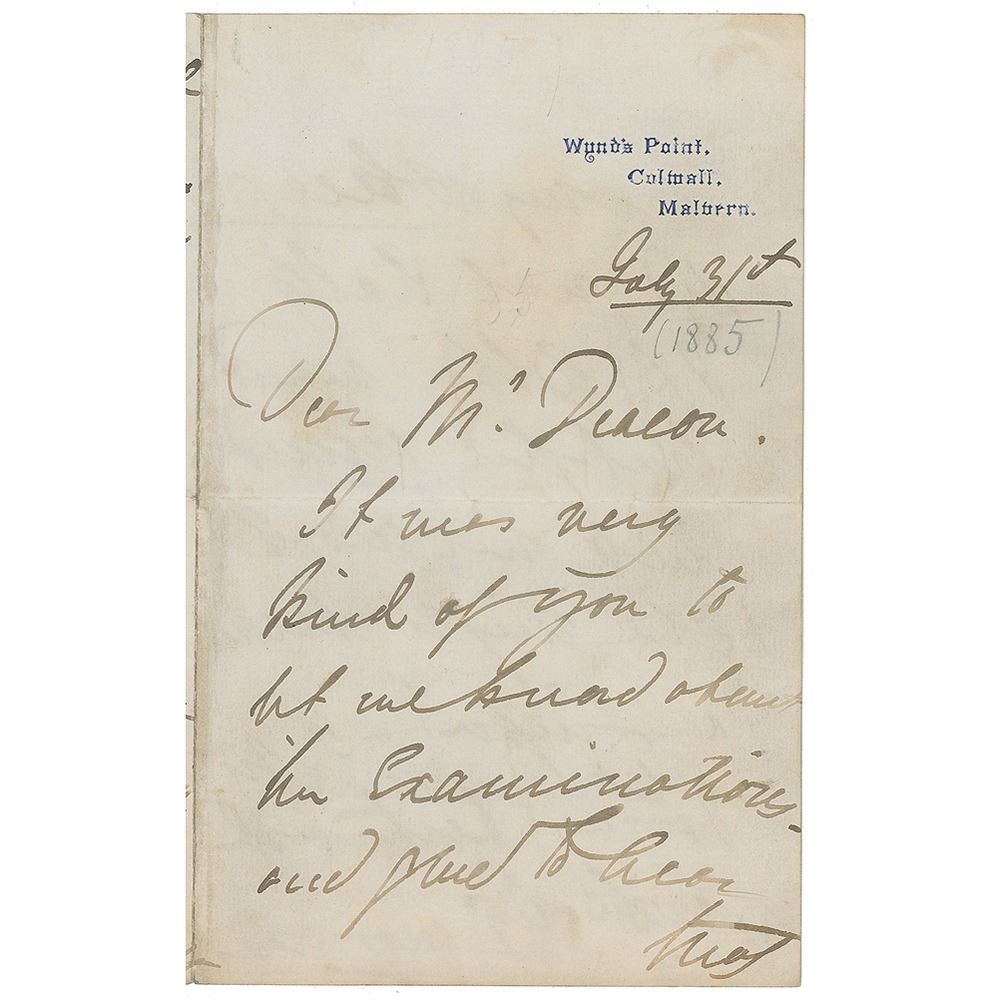 Wynd's Point,
Colwall,
Malvern.
July 31st
(1885)
Dear Mr. Deacon.
It was very
kind of you to
let me know about
the Examinations
and glad to hear
that